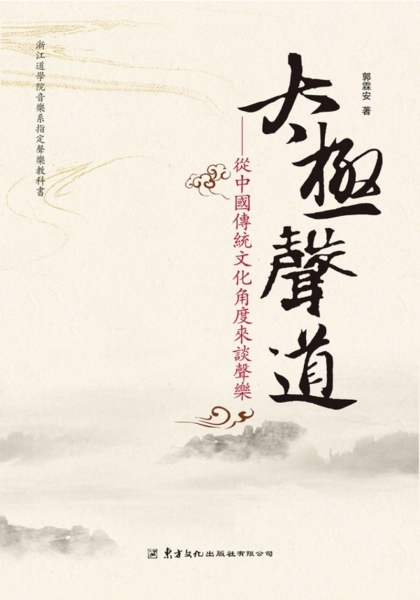 郭霖安 著
太極聲道
——從中國傳統文化角度來談聲樂
浙江道學院音樂系指定聲樂教科書
東方文化出版社有限公司